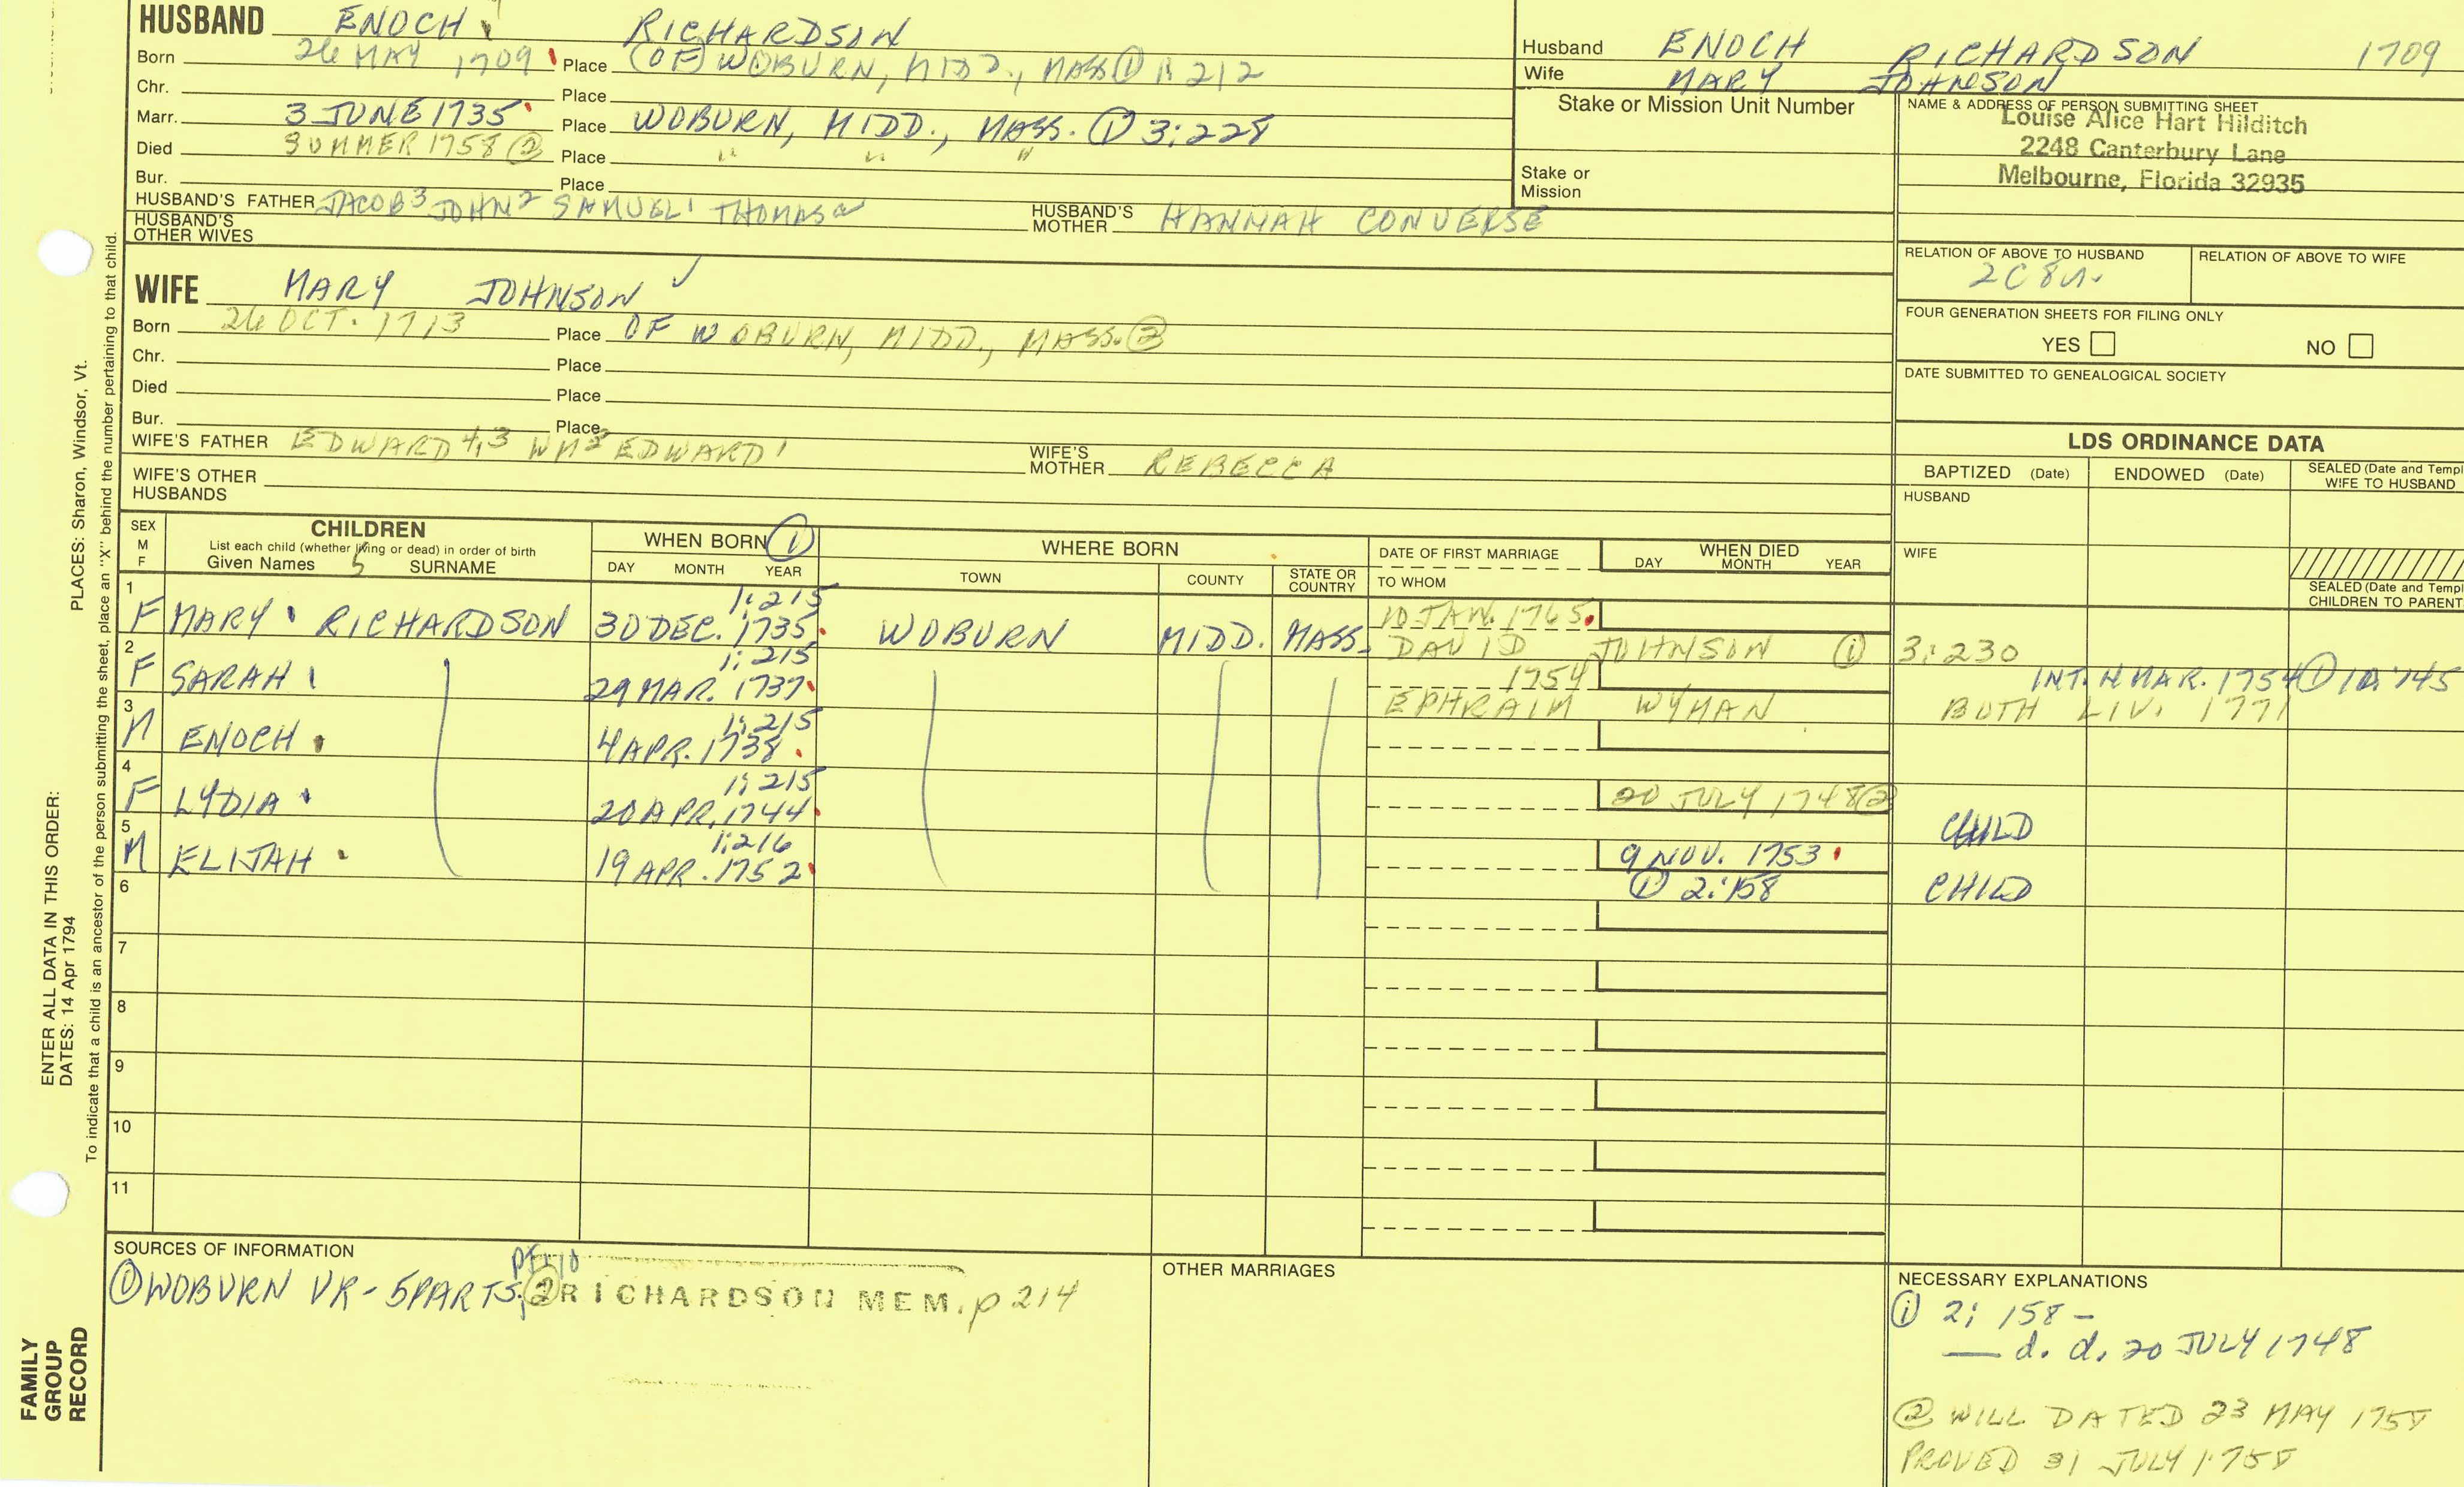 HUSBAND ENOCH RICHARDSON
Born 26 MAY 1709 Place (OF) WOBURN, MIDD., MASS ① 1:212
Chr. Place
Marr. 3 JUNE 1735 Place WOBURN, MIDD., MASS. ① 3:228
Died SUMMER 1758 ② Place " " "
Bur. Place
HUSBAND'S FATHER JACOB³ JOHN² SAMUEL¹ THOMAS HUSBAND'S MOTHER HANNAH CONVERSE
HUSBAND'S OTHER WIVES
WIFE MARY JOHNSON ✓
Born 26 OCT. 1713 Place OF WOBURN, MIDD., MASS. ②
Chr. Place
Died Place
Bur. Place
WIFE'S FATHER EDWARD⁴,³ WM² EDWARD¹ WIFE'S MOTHER REBECCA
WIFE'S OTHER HUSBANDS
Husband ENOCH RICHARDSON 1709
Wife MARY JOHNSON
Stake or Mission Unit Number
Stake or Mission
NAME & ADDRESS OF PERSON SUBMITTING SHEET
Louise Alice Hart Hilditch
2248 Canterbury Lane
Melbourne, Florida 32935
RELATION OF ABOVE TO HUSBAND RELATION OF ABOVE TO WIFE
2C8R.
FOUR GENERATION SHEETS FOR FILING ONLY
YES NO
DATE SUBMITTED TO GENEALOGICAL SOCIETY
LDS ORDINANCE DATA
BAPTIZED (Date) ENDOWED (Date) SEALED (Date and Templ
WIFE TO HUSBAND
HUSBAND
WIFE
SEALED (Date and Templ
CHILDREN TO PARENT
SEX M F
CHILDREN
List each child (whether living or dead) in order of birth
Given Names 5 SURNAME
WHEN BORN ①
DAY MONTH YEAR
WHERE BORN
TOWN COUNTY STATE OR COUNTRY
DATE OF FIRST MARRIAGE
TO WHOM
WHEN DIED
DAY MONTH YEAR
1 1:215
F MARY RICHARDSON 30 DEC. 1735 WOBURN MIDD. MASS. 10 JAN. 1765
DAVID JOHNSON ① 3:230
2 1:215
F SARAH 29 MAR. 1737 1754 INT. 11 MAR. 1754 ①
EPHRAIM WYMAN BOTH LIV. 1771
3 1:215
M ENOCH 4 APR. 1738
4 1:215
F LYDIA 20 APR. 1744 20 JULY 1748 ② CHILD
5 1:216
M ELIJAH 19 APR. 1752 9 NOV. 1753
① 2:158 CHILD
6
7
8
9
10
11
SOURCES OF INFORMATION
① WOBURN VR - 5 PARTS; ② RICHARDSON MEM. p 214
OTHER MARRIAGES
NECESSARY EXPLANATIONS
① 2: 158 -
— d. d. 20 JULY 1748
② WILL DATED 23 MAY 1758
PROVED 31 JULY 1758
PLACES: Sharon, Windsor, Vt.
ENTER ALL DATA IN THIS ORDER:
DATES: 14 Apr 1794
To indicate that a child is an ancestor of the person submitting the sheet, place an "X" behind the number pertaining to that child.
FAMILY
GROUP
RECORD